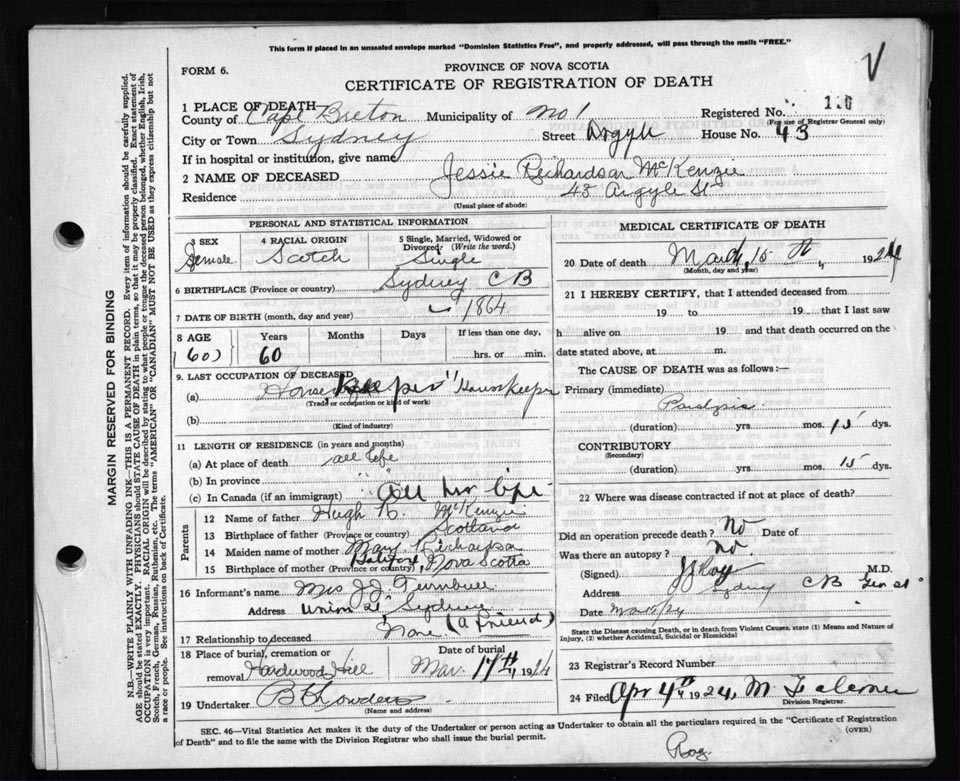 This form if placed in an unsealed envelope marked "Dominion Statistics Free", and properly addressed, will pass through the mails "FREE."
V
FORM 6.
PROVINCE OF NOVA SCOTIA
CERTIFICATE OF REGISTRATION OF DEATH
1 PLACE OF DEATH—
County of Cape Breton Municipality of No 1 Registered No.
(For use of Registrar General only)
City or Town Sydney Street Argyle House No. 43
If in hospital or institution, give name
2 NAME OF DECEASED Jessie Richardson McKenzie
Residence Argyle St
(Usual place of abode)
PERSONAL AND STATISTICAL INFORMATION
3 SEX 4 RACIAL ORIGIN 5 Single, Married, Widowed or Divorced (Write the word.)
Female Scotch Single
6 BIRTHPLACE (Province or country) Sydney CB
7 DATE OF BIRTH (month, day and year) 1864
8 AGE Years Months Days If less than one day,
(60) 60 hrs. or min.
9. LAST OCCUPATION OF DECEASED
(a) House keeper "Housekeeper
(Trade or occupation or kind of work)
(b)
(Kind of industry)
11 LENGTH OF RESIDENCE (in years and months)
(a) At place of death all life
(b) In province
(c) In Canada (if an immigrant) All her life
Parents
12 Name of father Hugh McKenzie
13 Birthplace of father (Province or country) Scotland
14 Maiden name of mother Mary Richardson
15 Birthplace of mother (Province or country) Halifax, Nova Scotia
16 Informant's name Mrs J.J. Turnbull
Address Union St Sydney
17 Relationship to deceased None (a friend)
18 Place of burial, cremation or removal Hardwood Hill
Date of burial
Mar. 17th, 1924
19 Undertaker
(Name and address)
MEDICAL CERTIFICATE OF DEATH
20 Date of death March 15th, 1924
(Month, day and year)
21 I HEREBY CERTIFY, that I attended deceased from
19 to 19 that I last saw
h alive on 19 and that death occurred on the
date stated above, at m.
The CAUSE OF DEATH was as follows:—
Primary (immediate)
Paralysis
(duration) yrs. mos. 15 dys.
CONTRIBUTORY
(Secondary)
(duration) yrs. mos. 15 dys.
22 Where was disease contracted if not at place of death?
Did an operation precede death? No Date of
Was there an autopsy? no.
(Signed) Roy M.D.
Address Sydney CB
Date
State the Disease causing Death, or in death from Violent Causes, state (1) Means and Nature of
Injury, (2) whether Accidental, Suicidal or Homicidal
23 Registrar's Record Number
24 Filed Apr 4th 1924, M.
Division Registrar.
SEC. 46—Vital Statistics Act makes it the duty of the Undertaker or person acting as Undertaker to obtain all the particulars required in the "Certificate of Registration
of Death" and to file the same with the Division Registrar who shall issue the burial permit.
(OVER)
Roy.
MARGIN RESERVED FOR BINDING
N.B.—WRITE PLAINLY WITH UNFADING INK—THIS IS A PERMANENT RECORD. Every item of information should be carefully supplied.
AGE should be stated EXACTLY. PHYSICIANS should STATE CAUSE OF DEATH in plain terms, so that it may be properly classified. Exact statement of
OCCUPATION is very important. RACIAL ORIGIN will be described by stating to what people or tongue the deceased person belonged, whether English, Irish,
Scotch, French, German, Russian, Ruthenian, etc. The terms "AMERICAN" or "CANADIAN" MUST NOT BE USED as they express citizenship but not
a race or people. See instructions on back of Certificate.